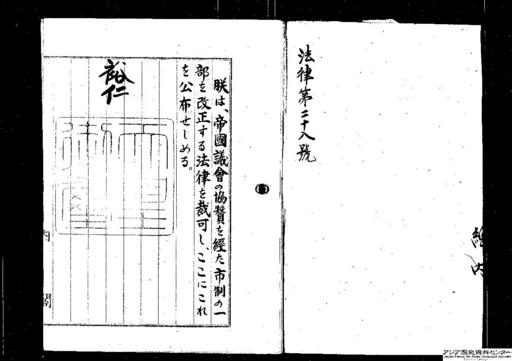 法律第二十八號
朕は、帝國議會の協贊を經た市制の一
部を改正する法律を裁可し、ここにこれ
を公布せしめる。
裕仁
内閣
アジア歴史資料センター